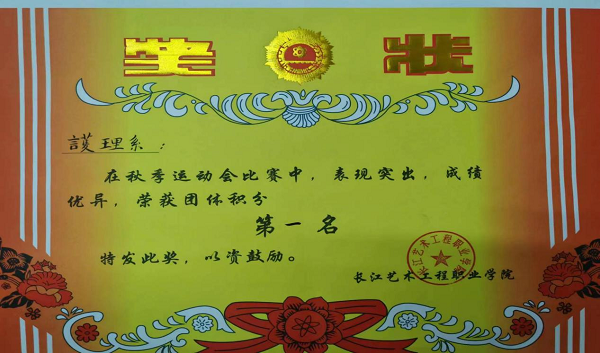 奖 状
護理系：
在秋季运动会比赛中，表现突出，成绩
优异，荣获团体积分
第一名
特发此奖，以资鼓励。
长江艺术工程职业学院
长江艺术工程职业学院